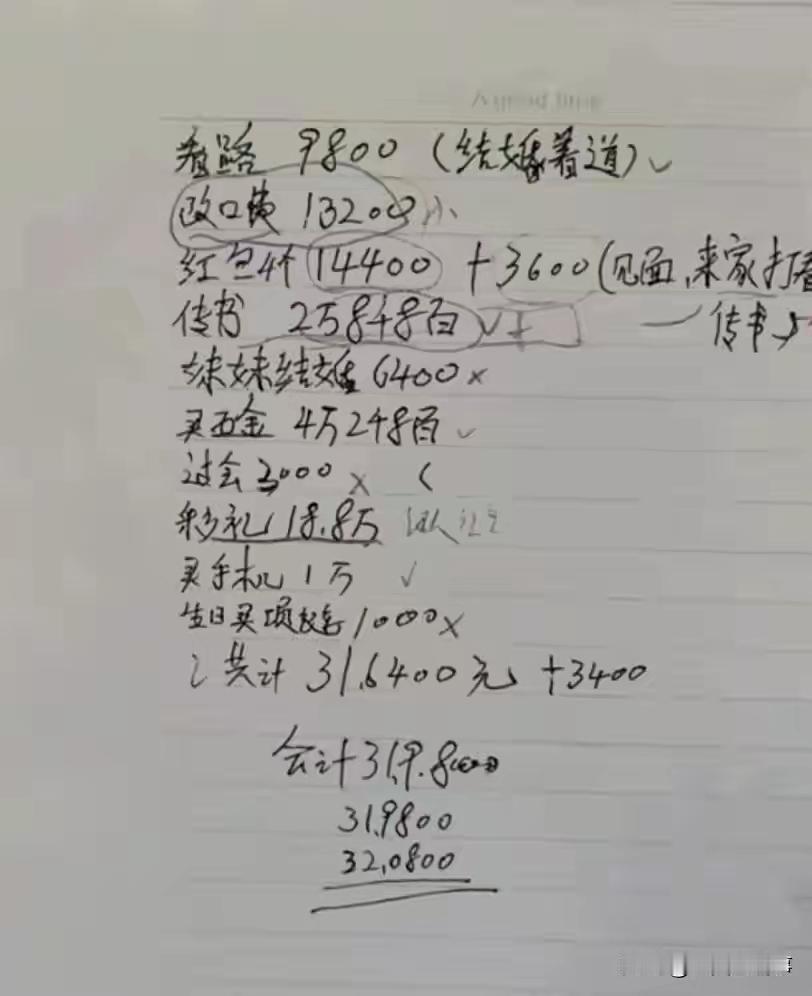 A good time
看路 9800 (结婚着道)√
改口费 13200 小
红包4个 14400 +3600(见面,来家打看
传书 25848百√+ 一传书
妹妹结婚 6400 x
买五金 4万248百√
过会3000 x (
彩礼 18.8万
买手机 1万 √
生日买项链 1000x
共计 31,6400元 +3400
合计31,9.8
31,9800
32,0800